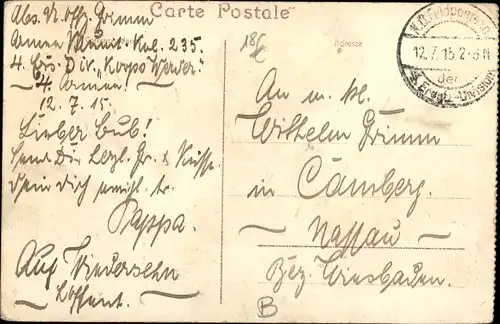 Carte Postale
Adresse
Abs. U. Offz. Grimm
Armee Munit. Kol. 235.
4. Ers. Div. „Korps Werder"
4. Armee!
12. 7. 15.
Lieber Bub!
Send Dir herzl. Gr. & Küsse
Dein dich
Pappa.
Auf Wiedersehn
K.D. Feldpostexp.
12.7.15. 2-3 N
der
4. Ersatz-Division
An m. kl.
Wilhelm Grimm
in Camberg.
Nassau
Bez. Wiesbaden.
B